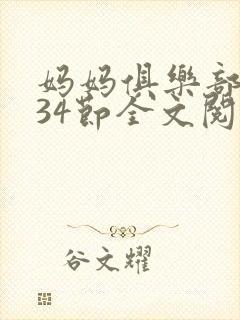 妈妈俱樂部
34節全文閱
谷文耀